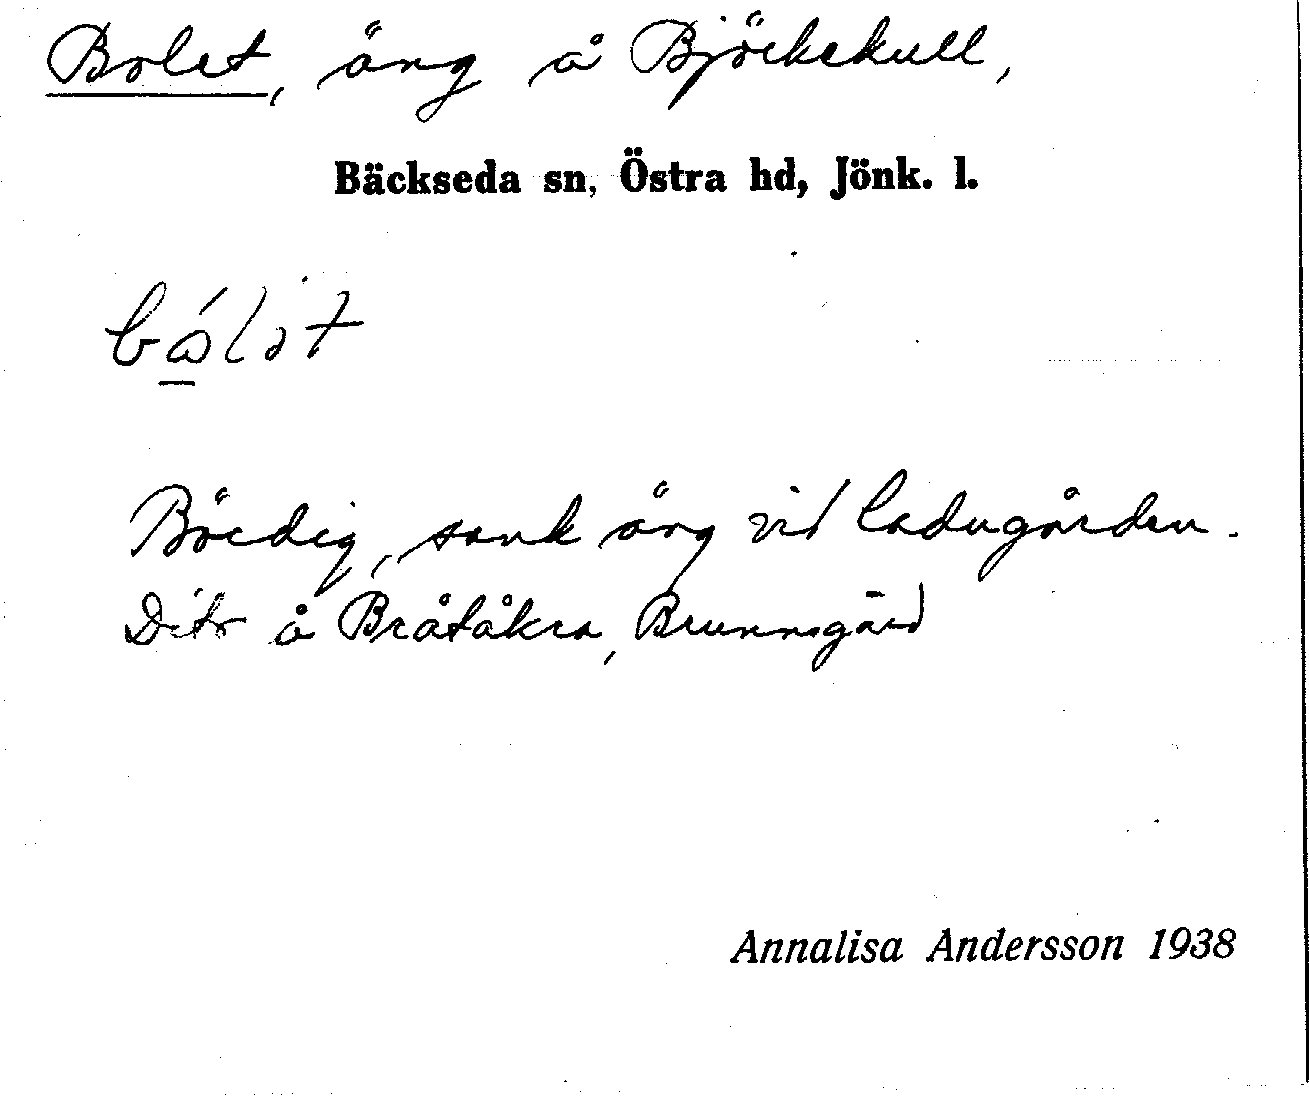 Bolet, äng å Björkekull,
Bäckseda sn, Östra hd, Jönk. l.
Bördig, sank äng vid ladugården.
Dito å Bråtåkra, Brunnsgård
Annalisa Andersson 1938